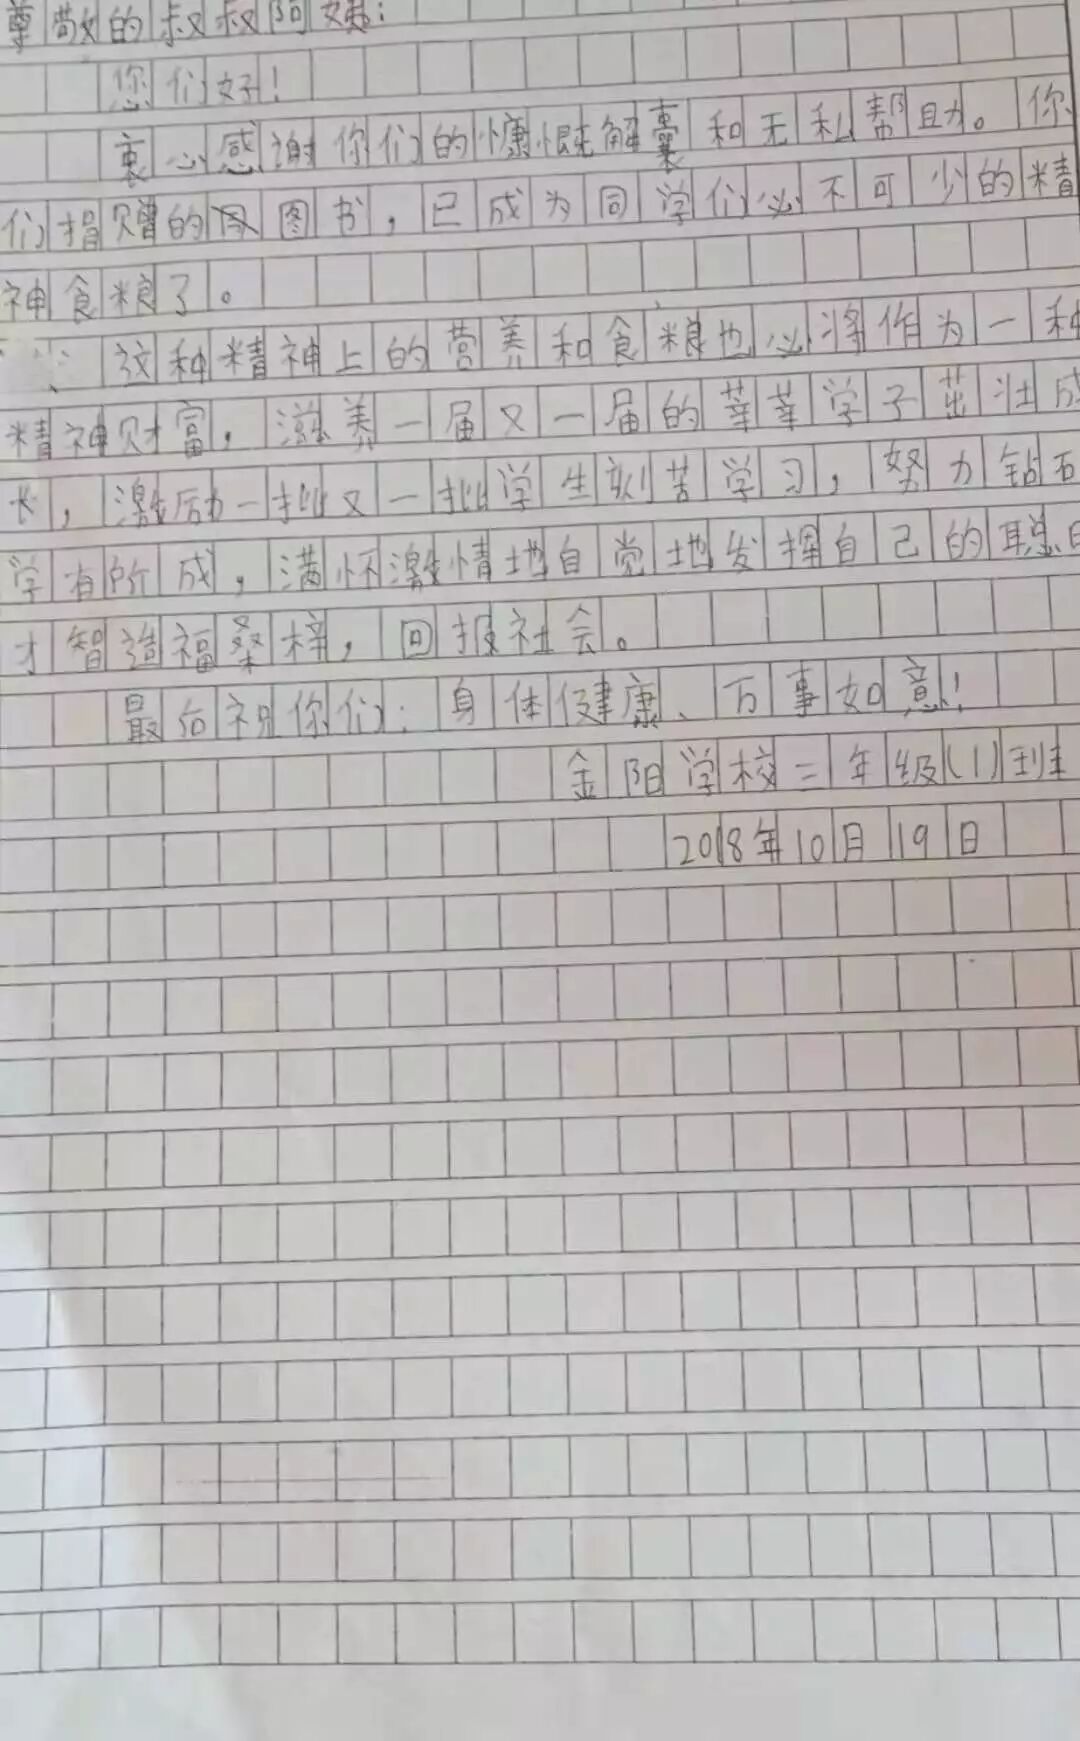 尊敬的叔叔阿姨:
您们好!
衷心感谢你们的慷慨解囊和无私帮助。你
们捐赠的图书,已成为同学们必不可少的精
神食粮了。
这种精神上的营养和食粮也必将作为一种
精神财富,滋养一届又一届的莘莘学子茁壮成
长,激励一批又一批学生刻苦学习,努力钻石
学有所成,满怀激情地自觉地发挥自己的聪
才智造福桑梓,回报社会。
最后祝你们:身体健康、万事如意!
金阳学校三年级(1)班
2018年10月19日